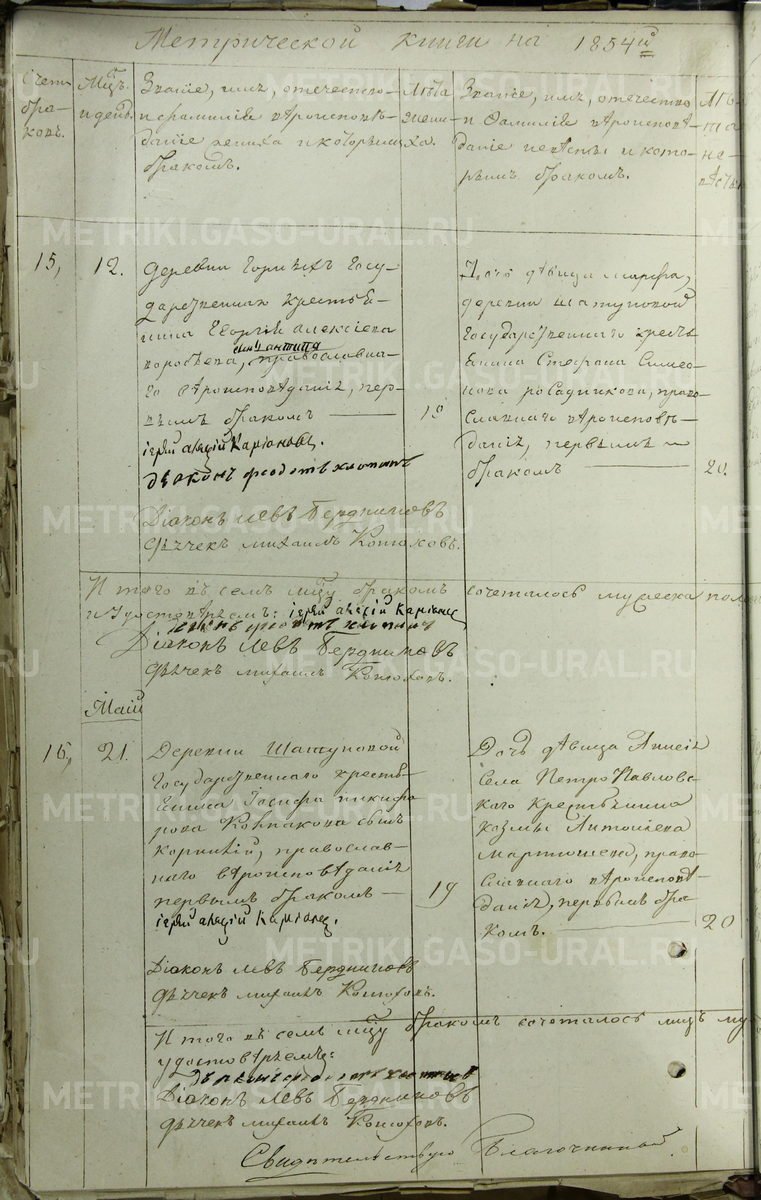 Метрической книги на 1854й
Счетъ
бра-
ковъ.
Мцъ.
и день.
Званіе, имя, отечество
и фамилія вѣроисповѣ-
даніе жениха и которымъ
бракомъ.
Лѣта
жени-
ха.
Званіе, имя, отечество
и фамилія вѣроисповѣ-
даніе невѣсты и кото-
рымъ бракомъ.
Лѣ-
та
не-
вѣсты
15,
12.
Деревни Горныхъ Госу-
дарственнаго крестья-
нина Георгія Алексіева
сынъ Антипа
Воробьева, православна-
го вѣроисповѣданія, пер-
вымъ бракомъ
19
іерей Алексій
Діаконъ Левъ Бердниковъ
Дьячекъ Михаилъ Конюховъ.
Дочь дѣвица Марфа,
деревни Шатуновой
Государственнаго кресть-
янина Стефана Симео-
нова Росадникова, право-
славнаго вѣроисповѣ-
данія, первымъ
бракомъ
20.
Итого въ семъ мцу бракомъ сочеталось мужеска
удостовѣряемъ: іерей Алексій
Діаконъ Левъ Бердниковъ
Дьячекъ Михаилъ Конюховъ.
Маій
16,
21.
Деревни Шатуновой
Государственнаго кресть-
янина Іосифа Никифо-
рова Колпакова сынъ
Корнилій, православ-
наго вѣроисповѣданія
первымъ бракомъ
19
іерей Алексій
Діаконъ Левъ Бердниковъ
Дьячекъ Михаилъ Конюховъ.
Дочь дѣвица
села Петро Павловс-
каго крестьянина
Козмы Антоніева
Мартюшева, право-
славнаго вѣроисповѣ-
данія, первымъ бра-
комъ.
20
Итого въ семъ мцу бракомъ сочеталось
удостовѣряемъ:
Діаконъ Левъ Бердниковъ
Дьячекъ Михаилъ Конюховъ.
Свидѣтельствую Благочинный
METRIKI.GASO-URAL.RU